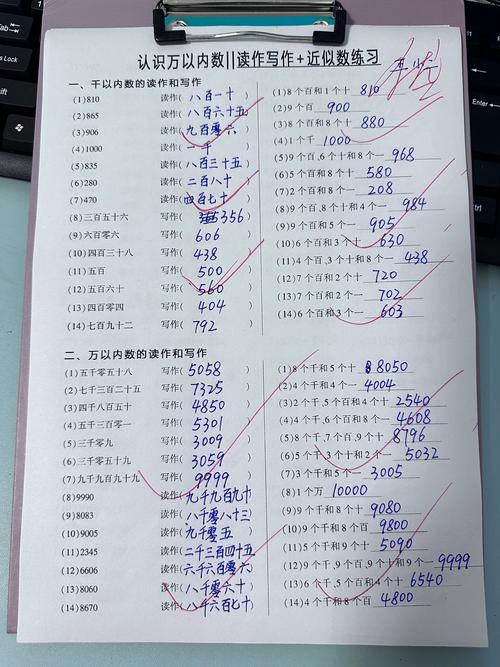 认识万以内数||读作写作+近似数练习
一、千以内数的读作和写作
(1)810 读作( 八百一十 )
(2)865 读作( 八百六十五 )
(3)906 读作( 九百零六 )
(4)1000 读作( 一千 )
(5)835 读作( 八百三十五 )
(6)280 读作( 二百八十 )
(7)470 读作( 四百七十 )
(8)三百五十六 写作( 356 )
(9)六百零六 写作( 606 )
(10)四百三十八 写作( 438 )
(11)五百 写作( 500 )
(12)五百六十 写作( 560 )
(13)四百零四 写作( 404 )
(14)七百九十二 写作( 792 )
(1)8个百和1个十 810
(2)9个百 900
(3)8个百和8个十 880
(4)1个千 1000
(5)9个百,6个十和8个一 968
(6)5个百和8个十 580
(7)2个百和8个一 208
(8)9个百,8个十和4个一 984
(9)9个百和5个一 905
(10)6个百和3个十 630
(11)4个百,3个十和8个一 438
(12)7个百和2个十 720
(13)7个百和2个一 702
(14)6个百和3个一 603
二、万以内数的读作和写作
(1)五千零五十八 写作( 5058 )
(2)七千三百二十五 写作( 7325 )
(3)四千八百五十 写作( 4850 )
(4)五千三百零一 写作( 5301 )
(5)三千零九 写作( 3009 )
(6)三千零五十九 写作( 3059 )
(7)九千九百九十九 写作( 9999 )
(8)9990 读作( 九千九百九十 )
(9)8083 读作( 八千零八十三 )
(10)9005 读作( 九千零五 )
(11)2345 读作( 二千三百四十五 )
(12)6606 读作( 六千六百零六 )
(13)8060 读作( 八千零六十 )
(14)8670 读作( 八千六百七十 )
(1)8个千和5个十 8050
(2)4个千和4个一 4004
(3)2个千,5个百和4个十 2540
(4)4个千,6个百和8个一 4608
(5)8个千,7个百,9个十 8796
(6)5个千,3个十和2个一 5032
(7)3个千和5个一 3005
(8)1个万 10000
(9)9个千和8个十 9080
(10)9个千和8个百 9800
(11)5个千和9个十 5090
(12)9个千,9个百,9个十和9个一 9999
(13)6个千,5个百和4个十 6540
(14)4个千和8个百 4800